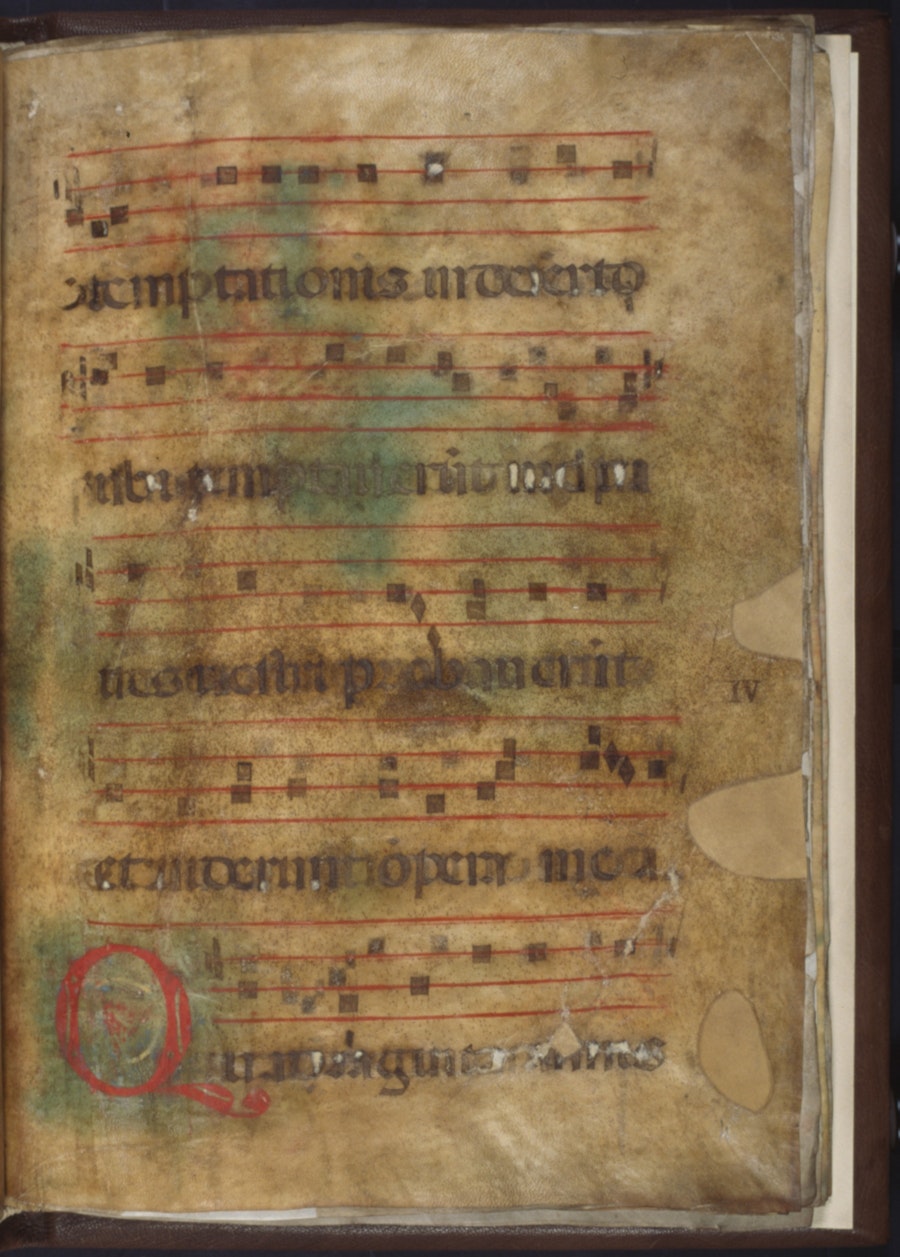 temptationis in deserto
ubi temptauerūt me pa
tres uestri probauerūt
IV
et uiderunt opera mea
Quadraginta annis